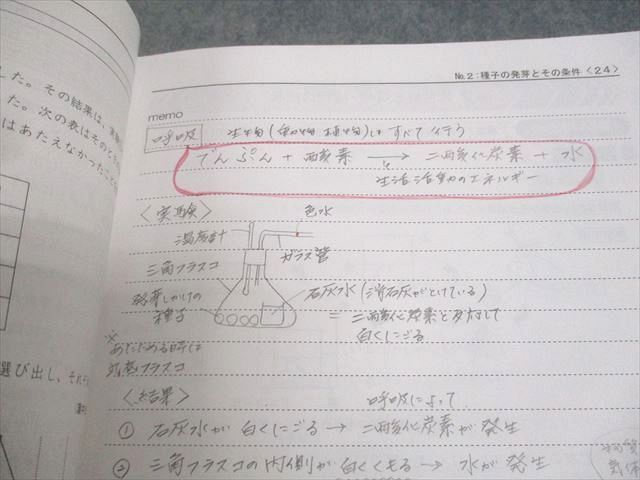 No.2:種子の発芽とその条件〈24〉
した。その結果は、実験
た。次の表はそのと
はあたえなかったこ
選び出し、それ
memo
呼吸 生物(動物 植物)は すべて 行う
でんぷん + 酸素 → 二酸化炭素 + 水
生活活動のエネルギー
〈実験〉 色水
温度計 ガラス管
三角フラスコ
発芽しかけの 石灰水(消石灰がとけている)
種子 = 二酸化炭素と反応して
白くにごる
※
あたためる時は
丸底フラスコ
〈結果〉 呼吸によって
① 石灰水が 白くにごる → 二酸化炭素が 発生
② 三角フラスコの内側が 白くくもる → 水が 発生